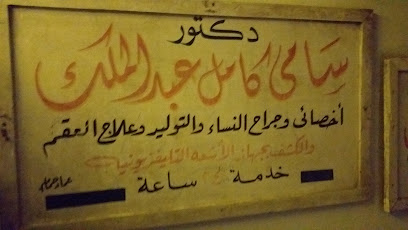 دكتور
سامى كامل عبد الملك
أخصائى وجراح النساء والتوليد وعلاج العقم
والكشف بجهاز الأشعة التليفزيونية
خدمة ٢٤ ساعة